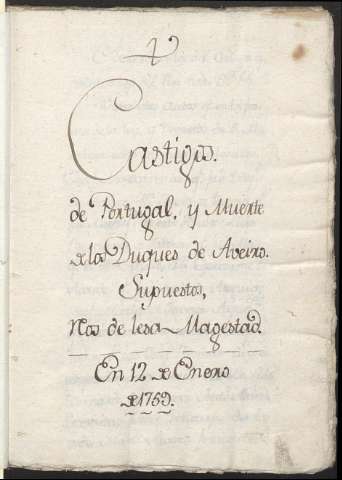 Castigos.
de Portugal, y Muerte
de los Duques de Aveiro.
Supuestos,
Reos de lesa Magestad
En 12 de Enero
de 1759.